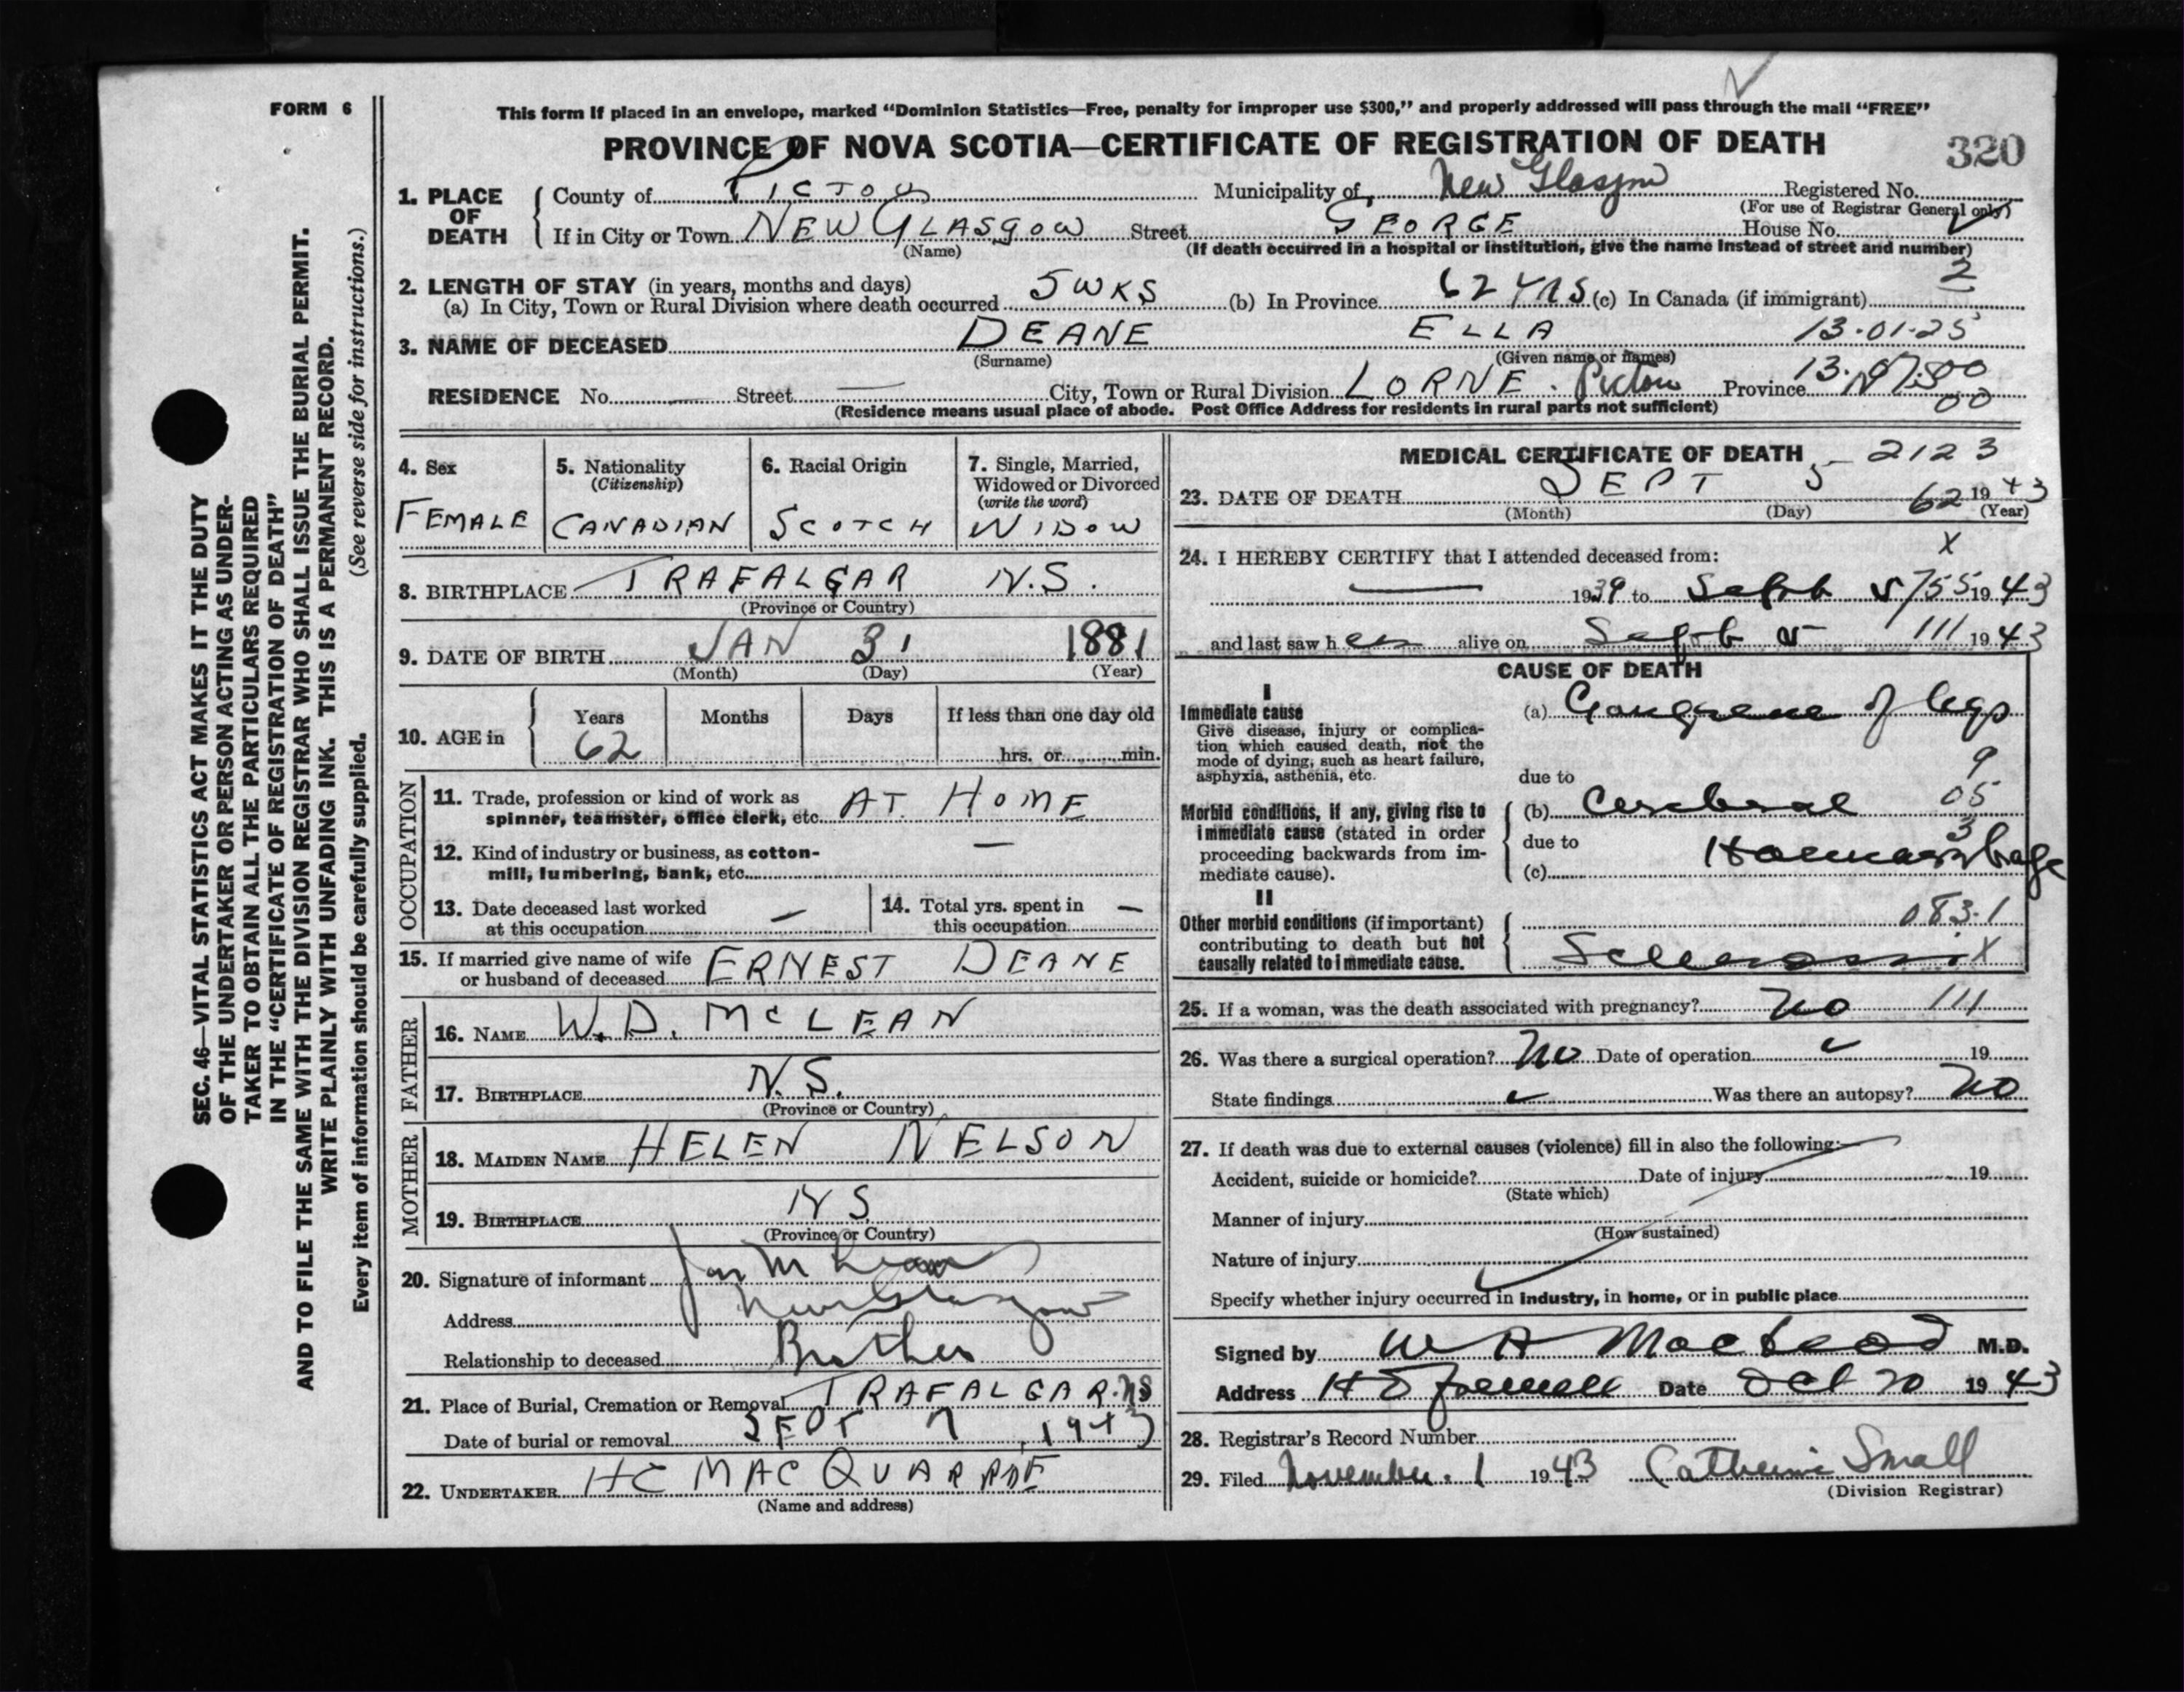 FORM 6
This form if placed in an envelope, marked “Dominion Statistics—Free, penalty for improper use $300,” and properly addressed will pass through the mail “FREE”
PROVINCE OF NOVA SCOTIA—CERTIFICATE OF REGISTRATION OF DEATH
320
1. PLACE OF DEATH County of PICTOU Municipality of New Glasgow Registered No.
(For use of Registrar General only)
If in City or Town NEW GLASGOW Street GEORGE House No.
(Name) (If death occurred in a hospital or institution, give the name instead of street and number)
2
2. LENGTH OF STAY (in years, months and days)
(a) In City, Town or Rural Division where death occurred 5 WKS (b) In Province 62 YRS (c) In Canada (if immigrant)
3. NAME OF DECEASED DEANE ELLA 13.01.25
(Surname) (Given name or names)
RESIDENCE No. — Street — City, Town or Rural Division LORNE. Pictou Province N.S. 13.07.00
00
(Residence means usual place of abode. Post Office Address for residents in rural parts not sufficient)
4. Sex
FEMALE
5. Nationality
(Citizenship)
CANADIAN
6. Racial Origin
SCOTCH
7. Single, Married,
Widowed or Divorced
(write the word)
WIDOW
8. BIRTHPLACE TRAFALGAR N.S.
(Province or Country)
9. DATE OF BIRTH JAN 31 1881
(Month) (Day) (Year)
10. AGE in Years Months Days If less than one day old
62 hrs. or min.
OCCUPATION
11. Trade, profession or kind of work as
spinner, teamster, office clerk, etc. AT HOME
12. Kind of industry or business, as cotton- —
mill, lumbering, bank, etc.
13. Date deceased last worked
at this occupation —
14. Total yrs. spent in
this occupation —
15. If married give name of wife
or husband of deceased ERNEST DEANE
FATHER
16. NAME W.D. MCLEAN
17. BIRTHPLACE N.S.
(Province or Country)
MOTHER
18. MAIDEN NAME HELEN NELSON
19. BIRTHPLACE N S
(Province or Country)
20. Signature of informant
Address New Glasgow
Relationship to deceased Brother
21. Place of Burial, Cremation or Removal TRAFALGAR. NS
Date of burial or removal SEPT 7, 1943
22. UNDERTAKER HC MACQUARRIE
(Name and address)
MEDICAL CERTIFICATE OF DEATH 2123
23. DATE OF DEATH SEPT 5 62 1943
(Month) (Day) (Year)
24. I HEREBY CERTIFY that I attended deceased from: X
— 1939 to Sept 5 755 1943
and last saw her alive on Sept 5 111 1943
CAUSE OF DEATH
I
Immediate cause
Give disease, injury or complica-
tion which caused death, not the
mode of dying, such as heart failure,
asphyxia, asthenia, etc.
(a) Gangrene of legs
9
due to
Morbid conditions, if any, giving rise to
immediate cause (stated in order
proceeding backwards from im-
mediate cause).
(b) Cerebral 05
3
due to
Haemorrhage
(c)
II
Other morbid conditions (if important)
contributing to death but not
causally related to immediate cause.
083.1
Sclerosis X
25. If a woman, was the death associated with pregnancy? no 111
26. Was there a surgical operation? No Date of operation 19
State findings Was there an autopsy? no
27. If death was due to external causes (violence) fill in also the following:
Accident, suicide or homicide? Date of injury 19
(State which)
Manner of injury
(How sustained)
Nature of injury
Specify whether injury occurred in industry, in home, or in public place
Signed by W A MacLeod M.D.
Address Date Oct 20 1943
28. Registrar's Record Number
29. Filed November. 1 1943 Catherine Small
(Division Registrar)
SEC. 46—VITAL STATISTICS ACT MAKES IT THE DUTY
OF THE UNDERTAKER OR PERSON ACTING AS UNDER-
TAKER TO OBTAIN ALL THE PARTICULARS REQUIRED
IN THE “CERTIFICATE OF REGISTRATION OF DEATH”
AND TO FILE THE SAME WITH THE DIVISION REGISTRAR WHO SHALL ISSUE THE BURIAL PERMIT.
WRITE PLAINLY WITH UNFADING INK. THIS IS A PERMANENT RECORD.
Every item of information should be carefully supplied. (See reverse side for instructions.)